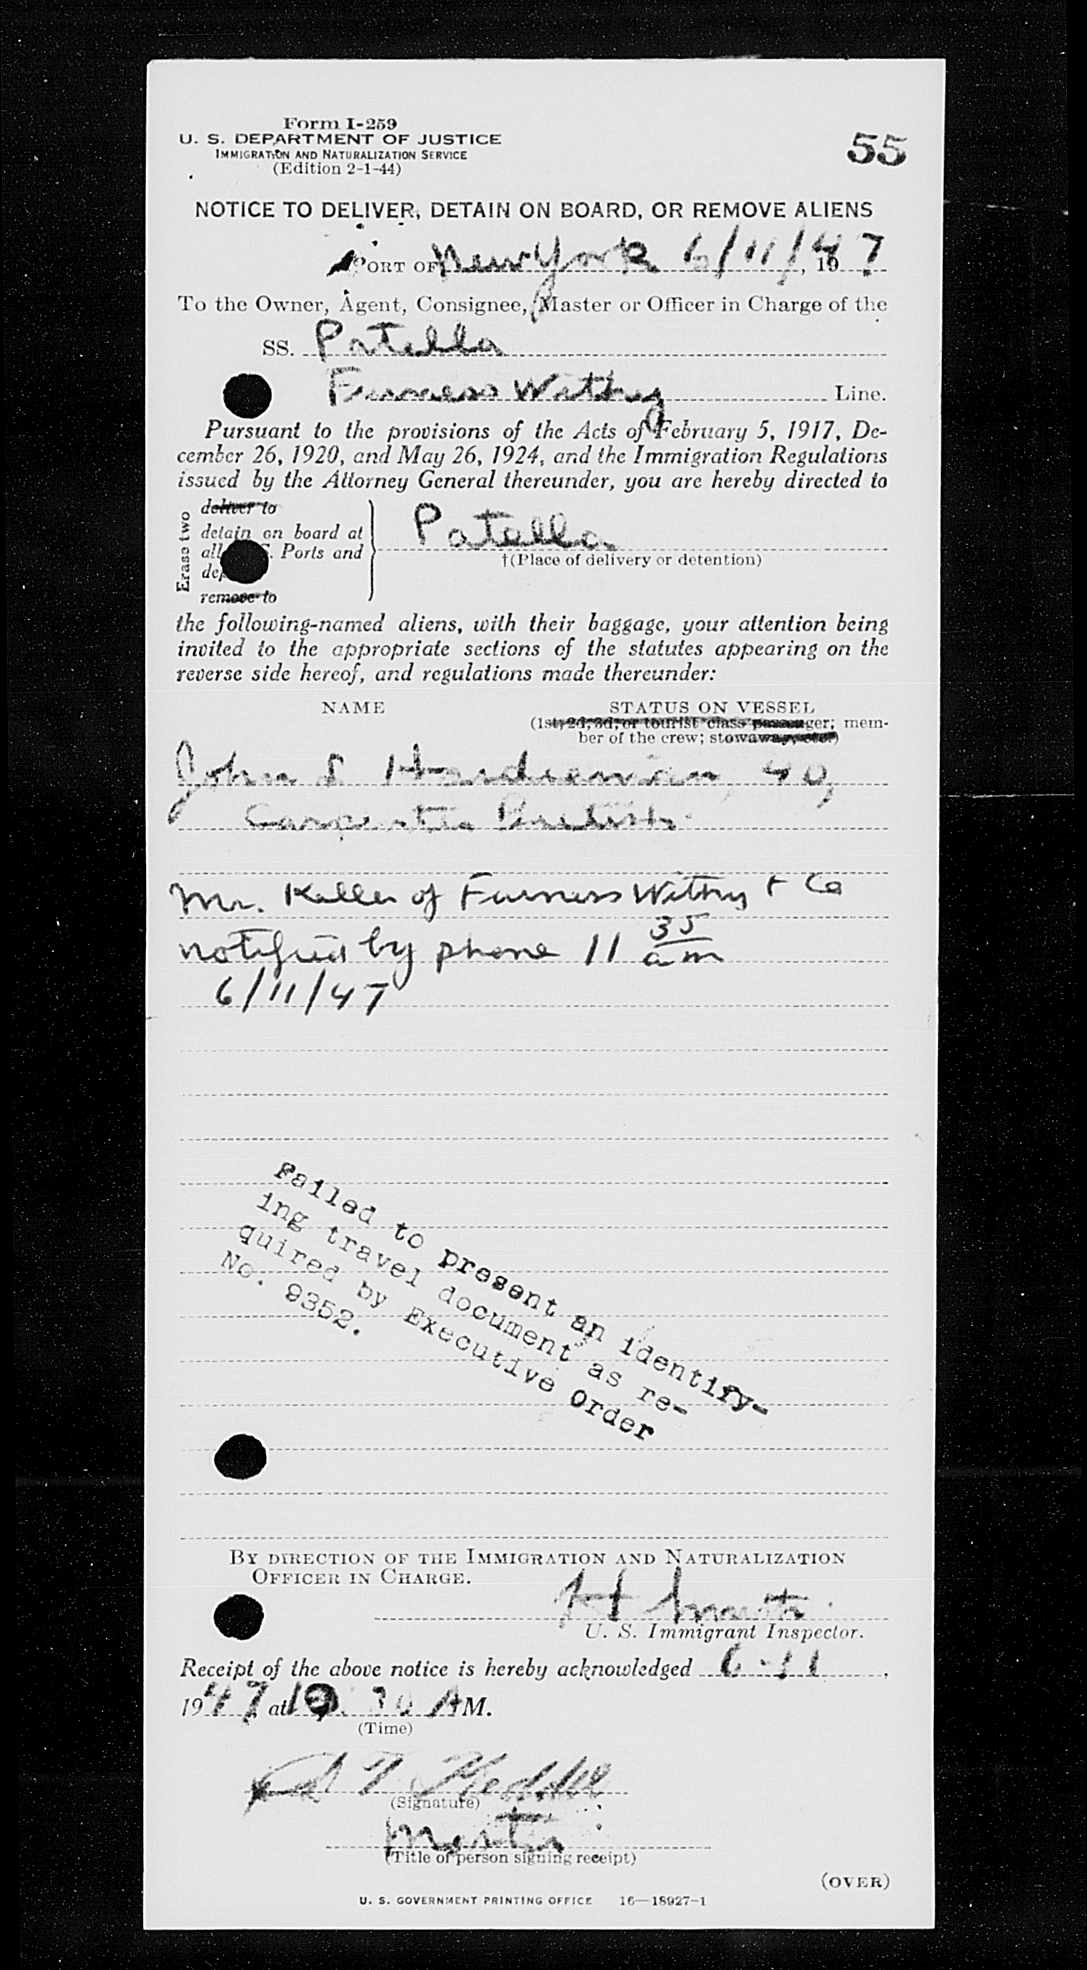 Form I-259
U. S. DEPARTMENT OF JUSTICE
IMMIGRATION AND NATURALIZATION SERVICE
(Edition 2-1-44)
55
NOTICE TO DELIVER, DETAIN ON BOARD, OR REMOVE ALIENS
PORT OF New York 6/11/, 1947
To the Owner, Agent, Consignee, Master or Officer in Charge of the
SS. Patella
Furness Withy Line.
Pursuant to the provisions of the Acts of February 5, 1917, De-
cember 26, 1920, and May 26, 1924, and the Immigration Regulations
issued by the Attorney General thereunder, you are hereby directed to
Erase two
deliver to
detain on board at
all Ports and
remove to
Patella
†(Place of delivery or detention)
the following-named aliens, with their baggage, your attention being
invited to the appropriate sections of the statutes appearing on the
reverse side hereof, and regulations made thereunder:
NAME
STATUS ON VESSEL
(1st, 2d, 3d, or tourist class passenger; mem-
ber of the crew; stowaway, etc.)
John 40,
Carpenter British
Mr. Keller of Furness Withy + Co
notified by phone 11 35 am
6/11/47
Failed to present an identify-
ing travel document as re-
quired by Executive Order
No. 9352.
BY DIRECTION OF THE IMMIGRATION AND NATURALIZATION
OFFICER IN CHARGE.
H
U. S. Immigrant Inspector.
Receipt of the above notice is hereby acknowledged 6-11,
1947 at 30 AM.
(Time)
(Signature)
Master
(Title of person signing receipt)
(OVER)
U. S. GOVERNMENT PRINTING OFFICE 16—18927-1